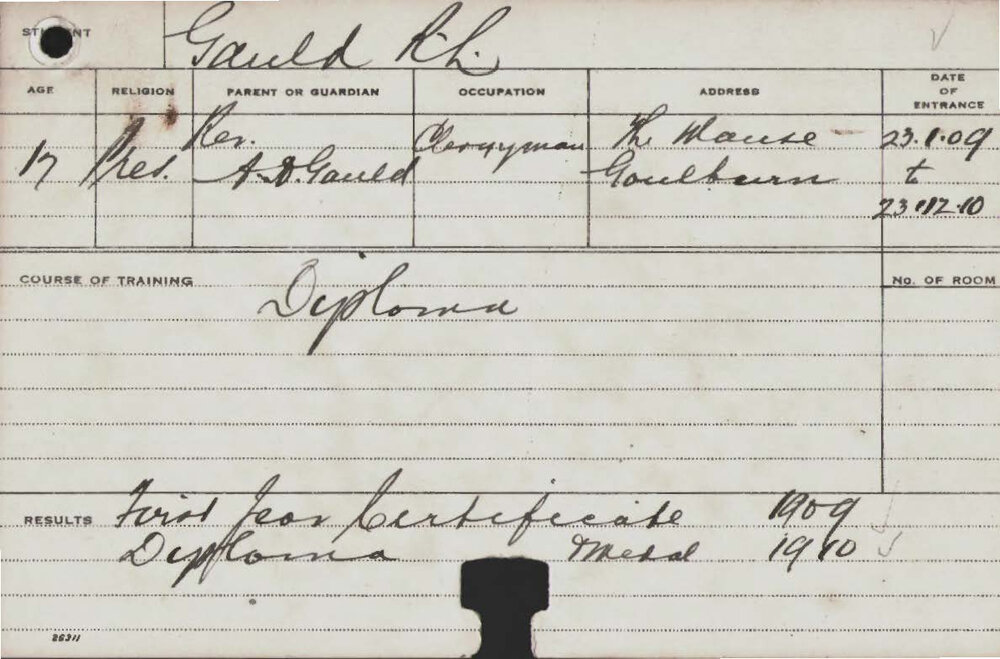 STUDENT Gauld R.L.
AGE RELIGION PARENT OR GUARDIAN OCCUPATION ADDRESS DATE OF ENTRANCE
17 Pres. Rev. A.D. Gauld Clergyman The Manse Goulburn 23.1.09 t 23.12.10
COURSE OF TRAINING Diploma No. OF ROOM
RESULTS First Year Certificate 1909
Diploma Medal 1910
26311